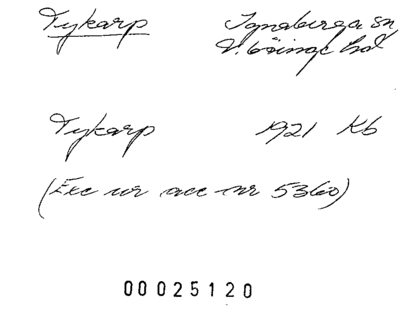 Tykarp Ignaberga sn
V. Göinge hd
Tykarp 1921 Kb
(Exc ur acc nr 5360)
00025120